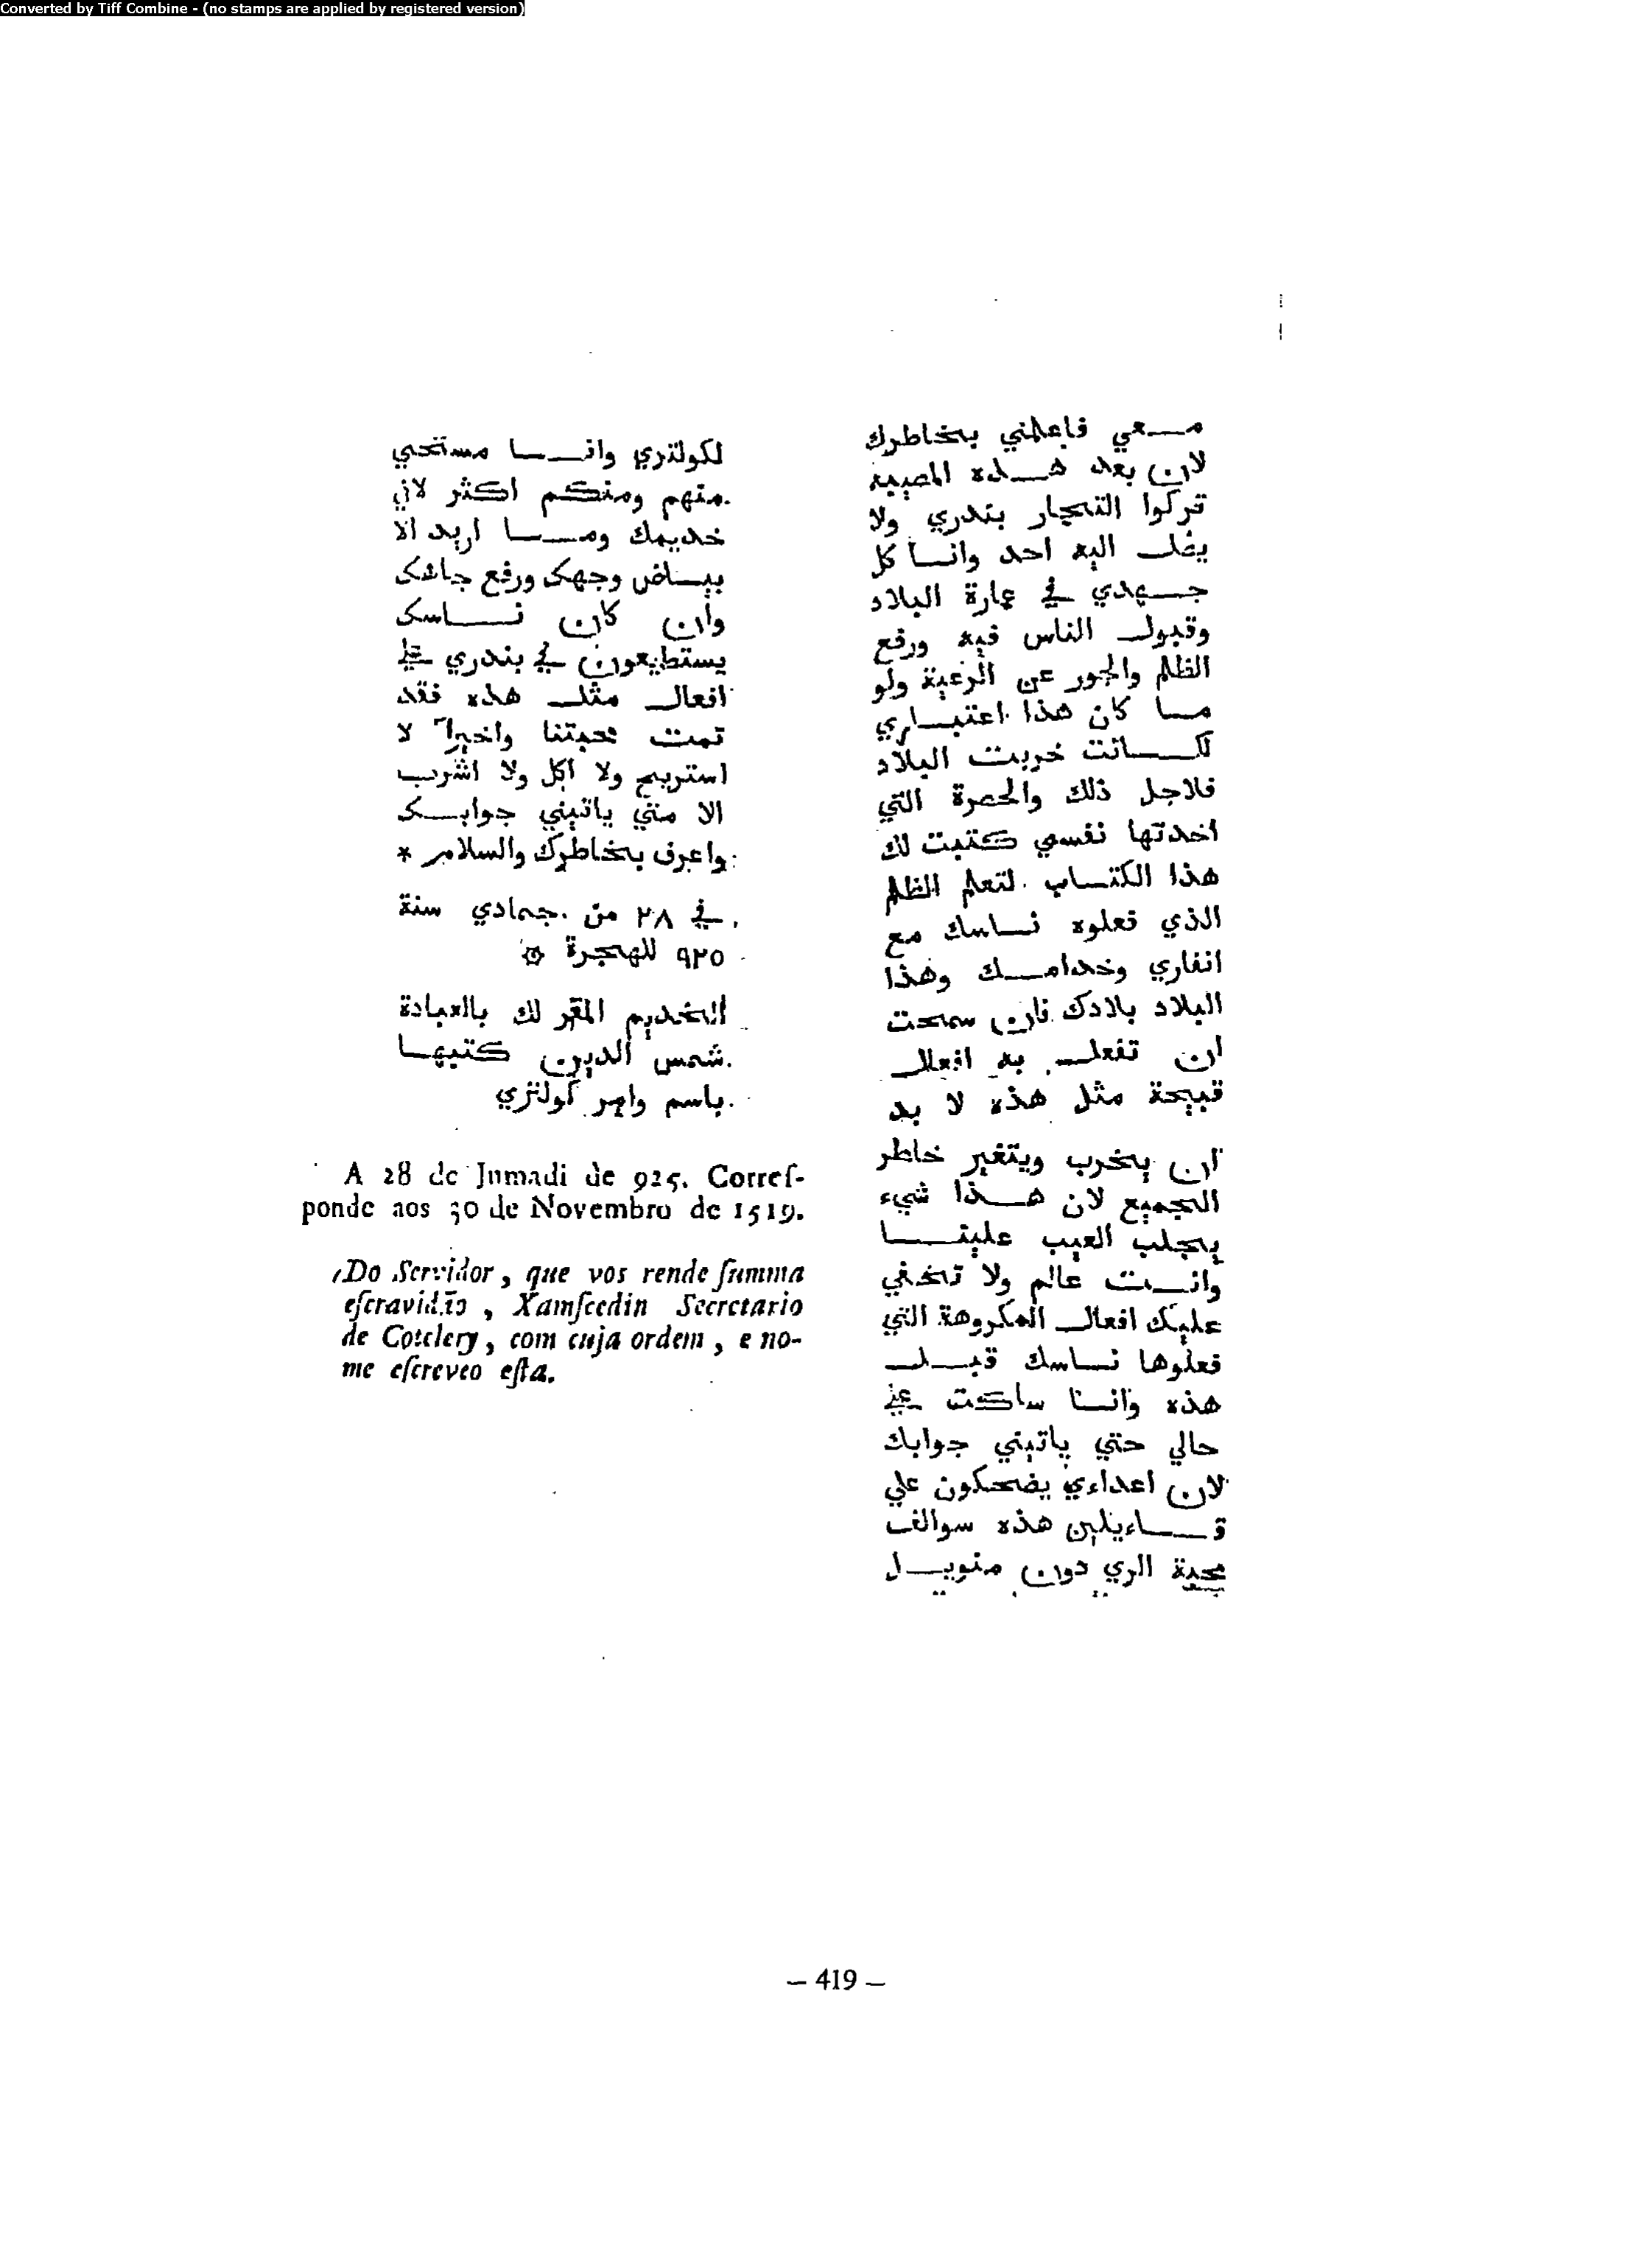 Converted by Tiff Combine - (no stamps are applied by registered version)
مـعي فاعلمني بخاطرك
لان بعد هـذه المصيبه
تركوا التجار بندري ولا
يظل اليه احد وانـا كل
جـهدي في عمارة البلاد
وقبول الناس فيه ورفع
الظلم والجور عن الرعية ولو
مـا كان هذا اعتبـاري
لكـانت خربت البلاد
فلاجل ذلك والحصرة التي
اخدتها نفسي كتبت لك
هذا الكتـاب لتعلم الظلم
الذي فعلوه نـاسك مع
انفاري وخدامـك وهذا
البلاد بلادك فان سمحت
ان تفعل به افعال
قبيحة مثل هذه لا بد
ان يخرب ويتغير خاطر
الجميع لان هـذا شيء
يجلب العيب علينـا
وانـت عالم ولا تخفي
عليك افعال المكروهة التي
فعلوها نـاسك قبـل
هذه وانـا ساكت علي
حالي حتي ياتيني جوابك
لان اعداءي يضحكون علي
قـاءيلين هذه سوالف
محبة الري دون منويـل
لكولتري وانـا مستحي
منهم ومنكم اكثر لاني
خديمك ومـا اريد الا
بيـاض وجهك ورفع جاشك
وان كان نـاسك
يستطيعون في بندري علي
افعال مثل هذه فقد
تمت محبتنا واخيرا لا
استريح ولا اكل ولا اشرب
الا متي ياتيني جوابـك
واعرف بخاطرك والسلام *
في ٢٨ من جمادي سنة
٩٢٥ للهجرة
الخديم المقر لك بالعبادة
شمس الدين كتبهـا
باسم وامر كولتري
A 28 de Jumadi de 925. Corres-
ponde aos 30 de Novembro de 1519.
Do Servidor, que vos rende ſumma
eſcravidaõ, Xamſeedin Secretario
de Cotelery, com cuja ordem, e no-
me eſcreveo eſta.
– 419 –